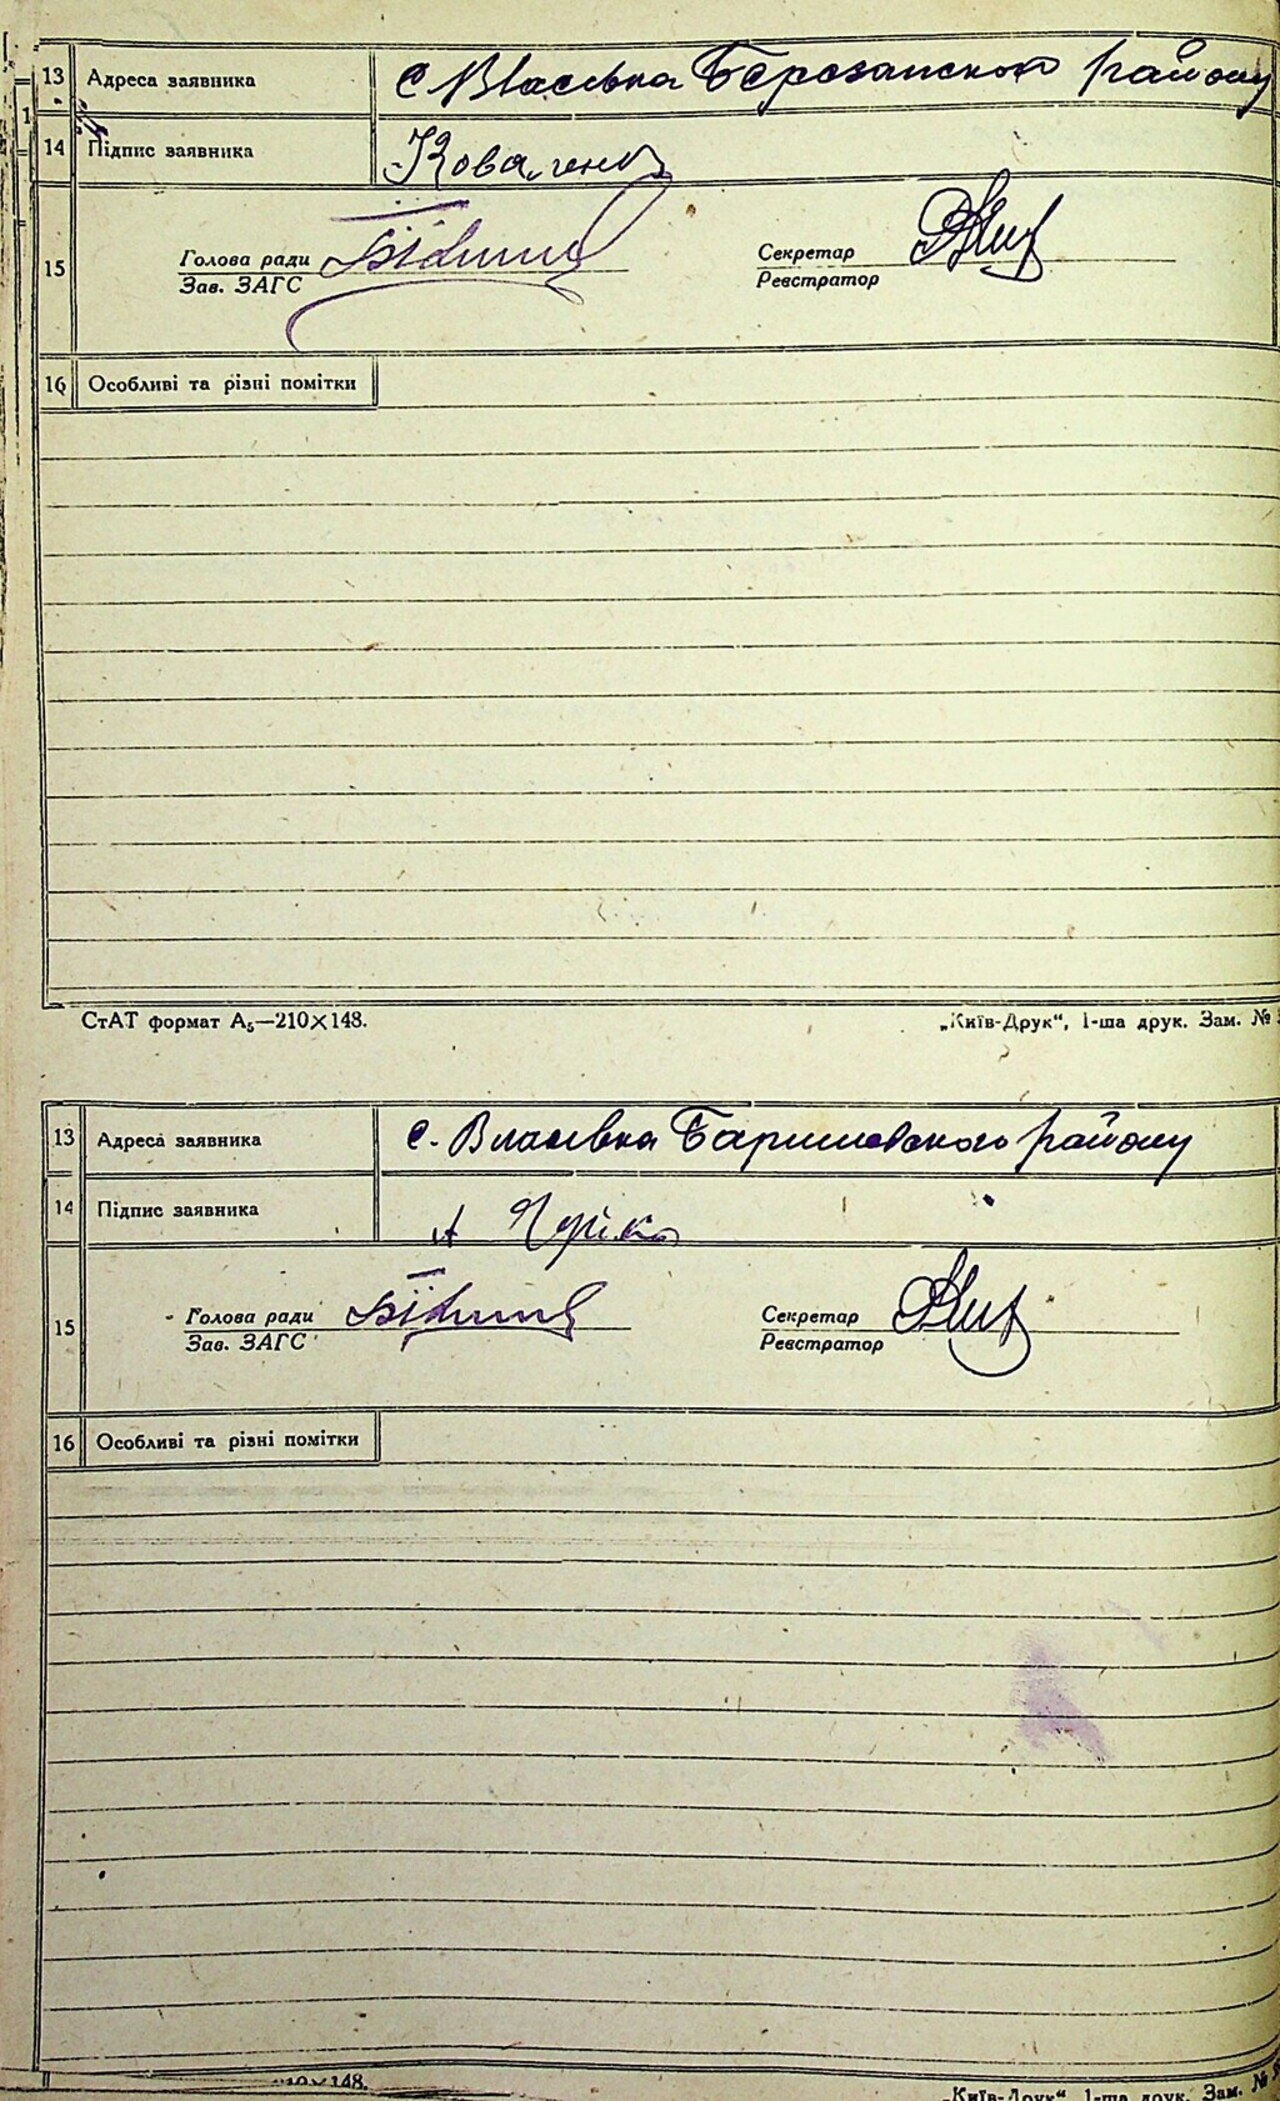 13 Адреса заявника с Власівка Березанського району
14 Підпис заявника Коваленко
15 Голова ради Секретар
Зав. ЗАГС Реєстратор
16 Особливі та різні помітки
СтАТ формат А5—210×148. „Київ-Друк“, 1-ша друк. Зам. №
13 Адреса заявника с. Власівка Баришевского району
14 Підпис заявника
15 Голова ради Секретар
Зав. ЗАГС Реєстратор
16 Особливі та різні помітки
×148. „Київ-Друк“, 1-ша друк. Зам. №